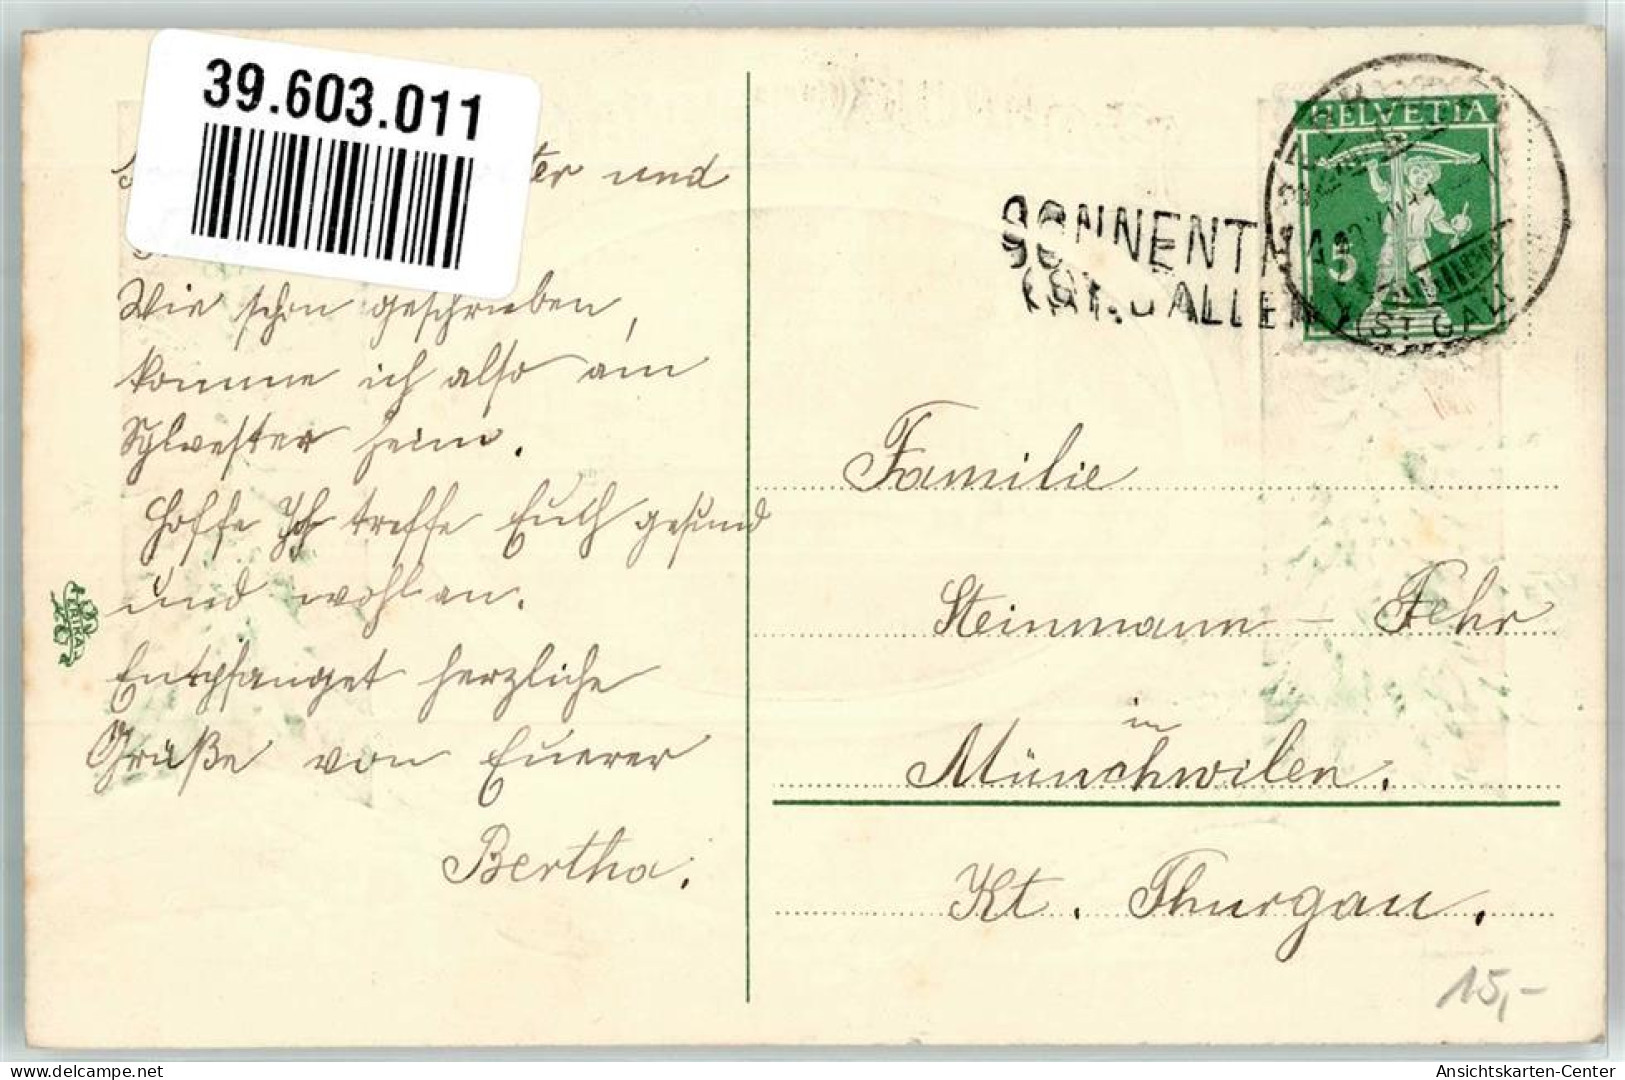 39.603.011
ter und
Wie schon geschrieben,
komme ich also am
Sylvester heim.
Hoffe Ich treffe Euch gesund
und wohl an.
Entpfanget herzliche
Grüße von Euerer
Bertha.
ERIKA
SONNENT
(ST. GALLEN
HELVETIA
5
(ST. GALL
Familie
Steinmann - Fehr
in
Münchwilen.
Kt. Thurgau.
15,-
Ansichtskarten-Center